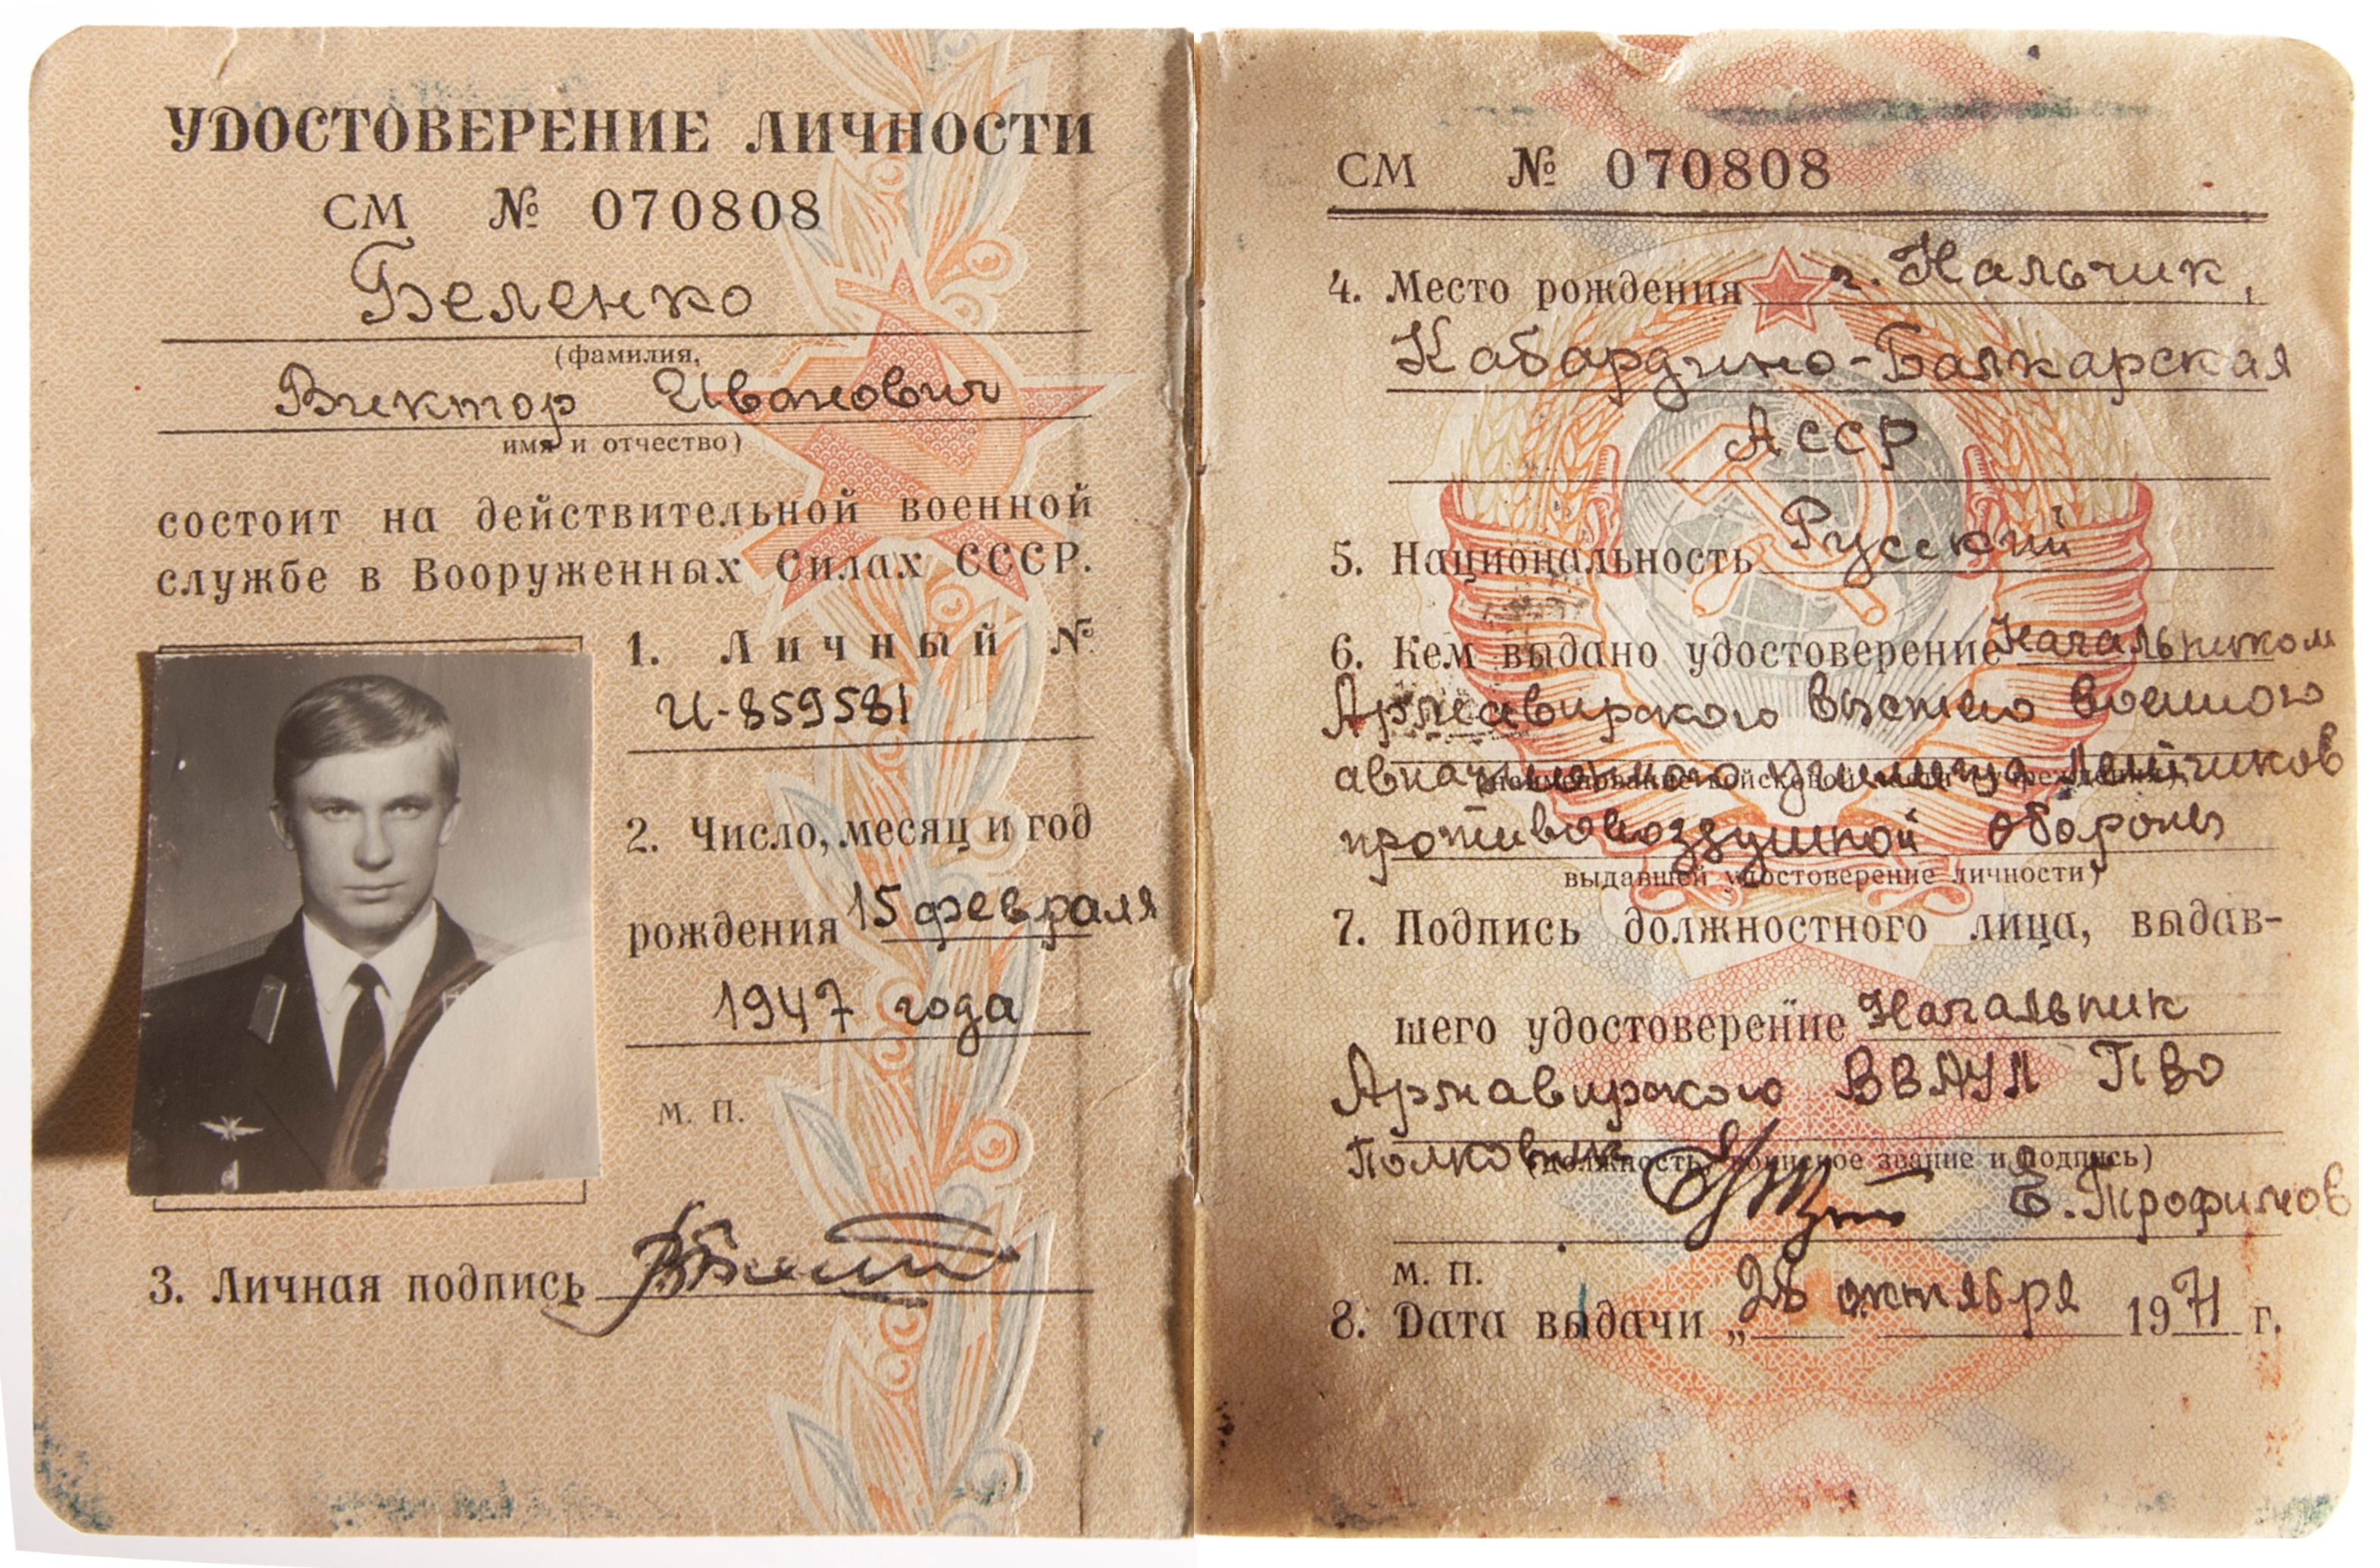 УДОСТОВЕРЕНИЕ ЛИЧНОСТИ
СМ № 070808
Беленко
(фамилия,
Виктор Иванович
имя и отчество)
состоит на действительной военной
службе в Вооруженных Силах СССР.
1. Личный №
И-859581
2. Число, месяц и год
рождения 15 февраля
1947 года
М. П.
3. Личная подпись
СМ № 070808
4. Место рождения г. Нальчик,
Кабардино-Балкарская
АССР
5. Национальность Русский
6. Кем выдано удостоверение Начальником
Армавирского высшего военного
авиационного училища летчиков
противовоздушной обороны
выдавшей удостоверение личности)
7. Подпись должностного лица, выдав-
шего удостоверение Начальник
Армавирского ВВАУЛ ПВО
Полковник
(должность, воинское звание и подпись)
Е. Трофимов
М. П.
8. Дата выдачи „28 октября 1971 г.